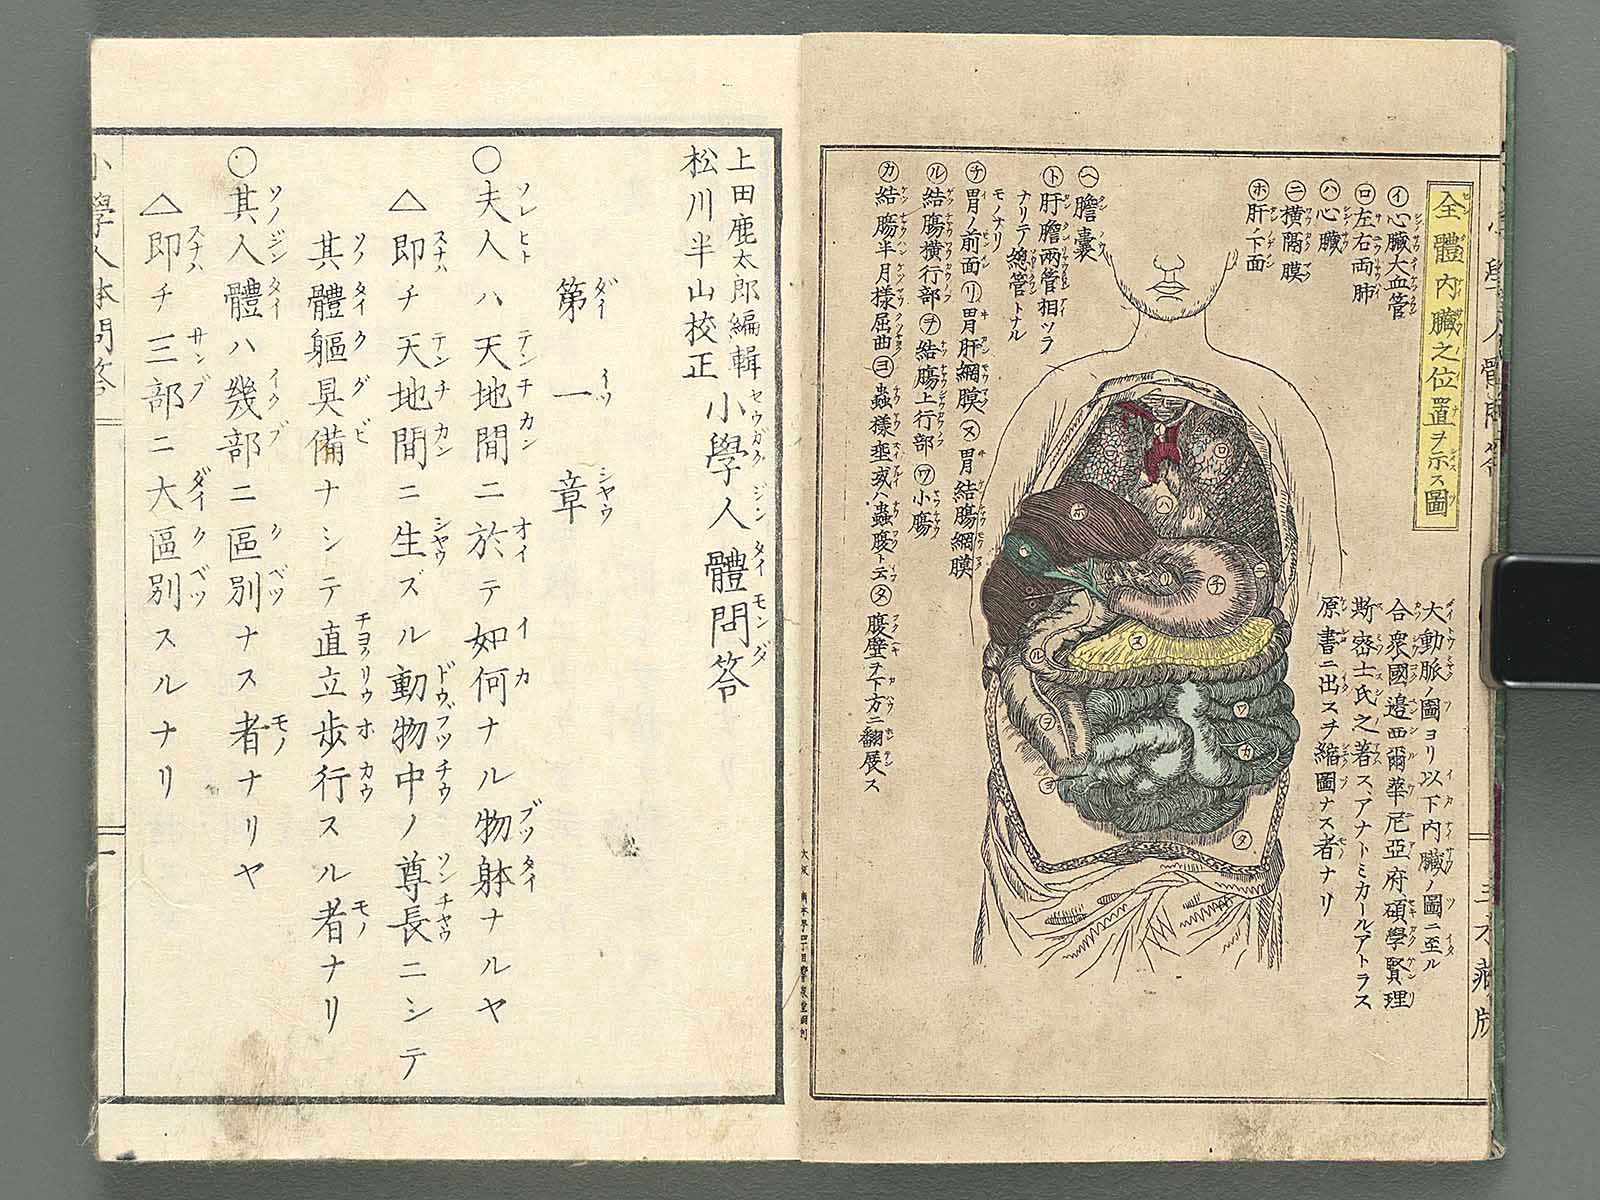 全體内臓之位置ヲ示ス圖
㋑心臓大血管
㋺左右両肺
㋩心臓
㋥横隔膜
㋭肝ノ下面
㋬膽嚢
㋣肝膽兩管相ソフ
ナリテ總管トナル
モノナリ
㋠胃ノ前面㋷胃肝網膜㋦胃結膓網膜
㋸結膓横行部㋾結膓上行部㋻小膓
㋕結膓半月様屈曲㋵蟲様埀或ハ蟲膸ト云㋟腹壁ヲ下方ニ翻展ス
大動脈ノ圖ヨリ以下内臓ノ圖ニ至ル
合衆國邉西爾華尼亞府碩學賢理
斯密士氏之著ス、アナトミカールアトラス
原書ニ出スヲ縮圖ナス者ナリ
小學人體問答
上田鹿太郎編輯
松川半山校正
小學人體問答
第一章
○夫人ハ天地間ニ於テ如何ナル物躰ナルヤ
△即チ天地間ニ生ズル動物中ノ尊長ニシテ
其體軀具備ナシテ直立歩行スル者ナリ
○其人體ハ幾部ニ區別ナス者ナリヤ
△即チ三部ニ大區別スルナリ
小學人体問答
一